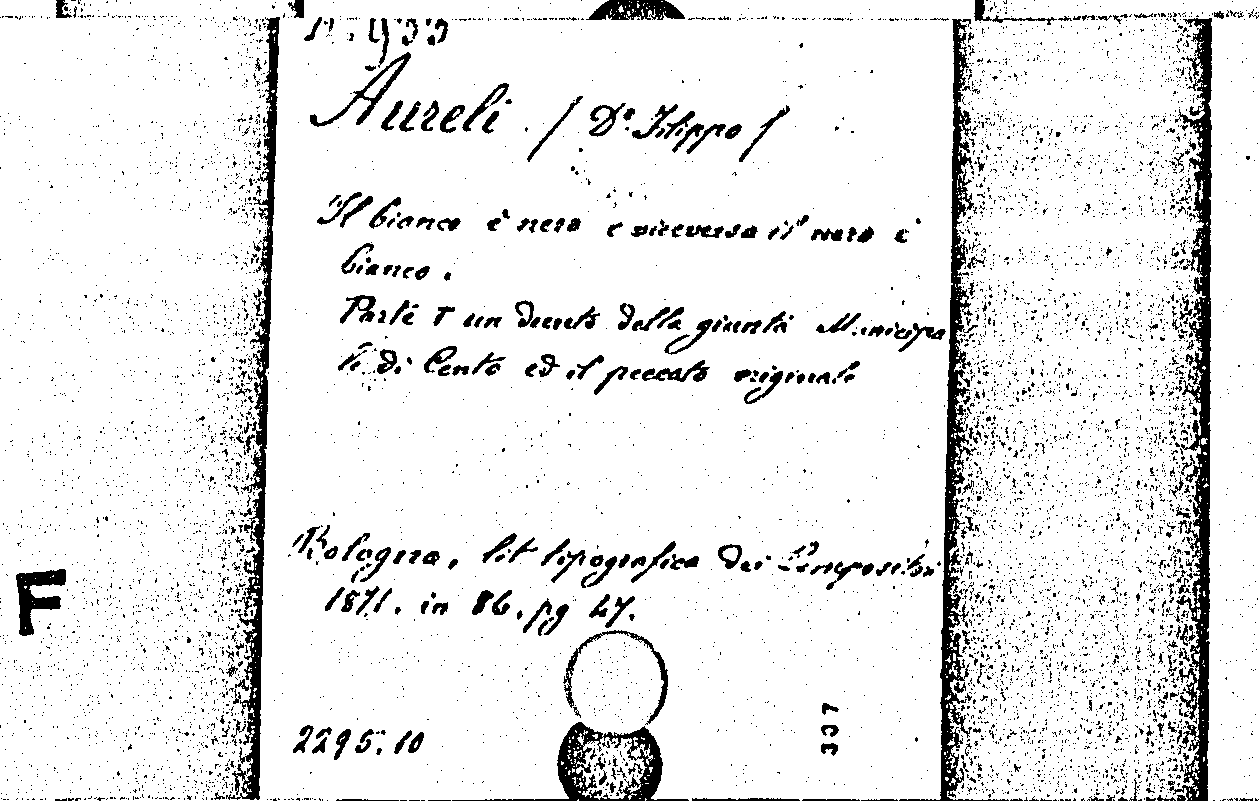 Aureli . / Dr. Filippo /
Il bianco è nero e viceversa il nero è
bianco .
Parte I un decreto della giunta Municipa
le di Cento ed il peccato originale
Bologna, lit tipografica dei Compositori
1871. in 86. pg 27.
F
2295.10
337